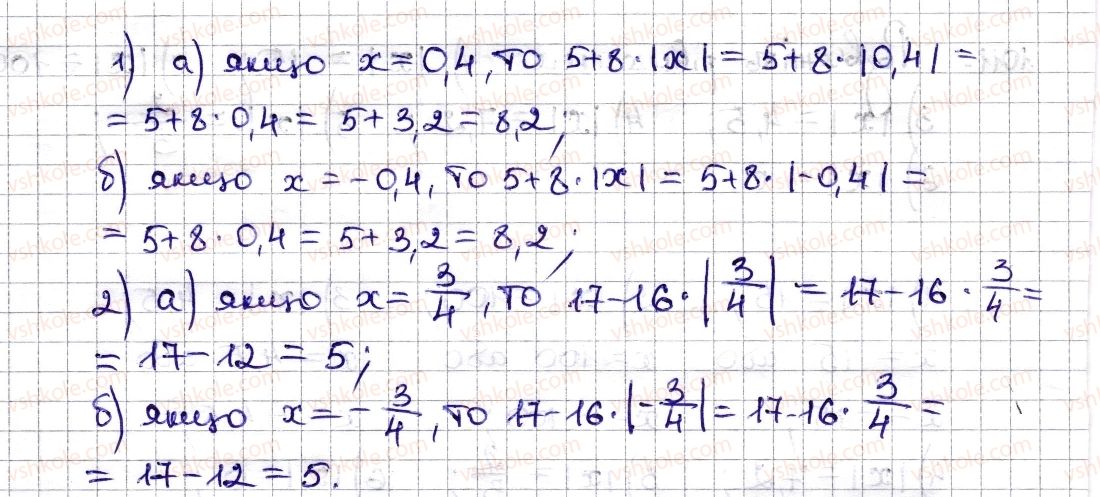 1) а) якщо x = 0,4, то 5+8·|x| = 5+8·|0,4| =
= 5+8·0,4 = 5+3,2 = 8,2;
б) якщо x = -0,4, то 5+8·|x| = 5+8·|-0,4| =
= 5+8·0,4 = 5+3,2 = 8,2;
2) а) якщо x = 3/4, то 17-16·|3/4| = 17-16·3/4 =
= 17-12 = 5;
б) якщо x = -3/4, то 17-16·|-3/4| = 17-16·3/4 =
= 17-12 = 5.
vshkole.com